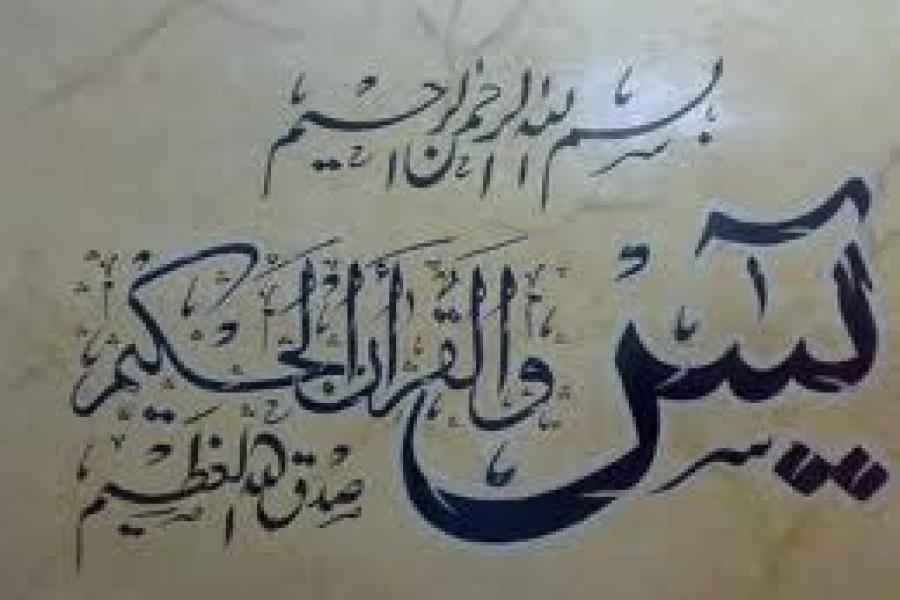 بسم الله الرحمن الرحيم
يس والقرآن الحكيم
صدق الله العظيم